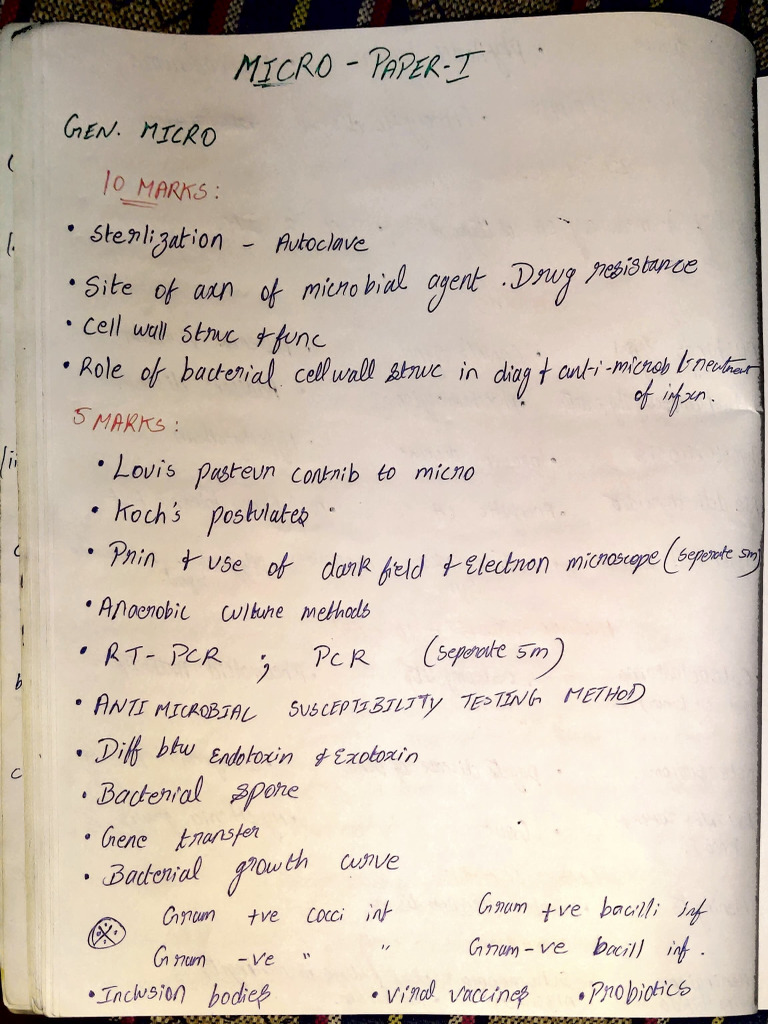 MICRO - PAPER-I
GEN. MICRO
10 MARKS:
• Sterlization - Autoclave
• Site of axn of microbial agent . Drug resistance
• Cell wall struc & func
• Role of bacterial cellwall struc in diag & anti-microb treatment
of infxn.
5 MARKS:
• Louis pasteur contrib to micro
• Koch's postulates
• Prin & use of dark field & Electron microscope (seperate 5m)
• Anaerobic culture methods
• RT-PCR ; PCR (seperate 5m)
• ANTI MICROBIAL SUSCEPTIBILITY TESTING METHOD
• Diff btw Endotoxin & Exotoxin
• Bacterial spore
• Gene transfer
• Bacterial growth curve
Gram +ve cocci inf Gram +ve bacilli inf
Gram -ve " " Gram -ve bacill inf.
• Inclusion bodies • Viral vaccines • Probiotics